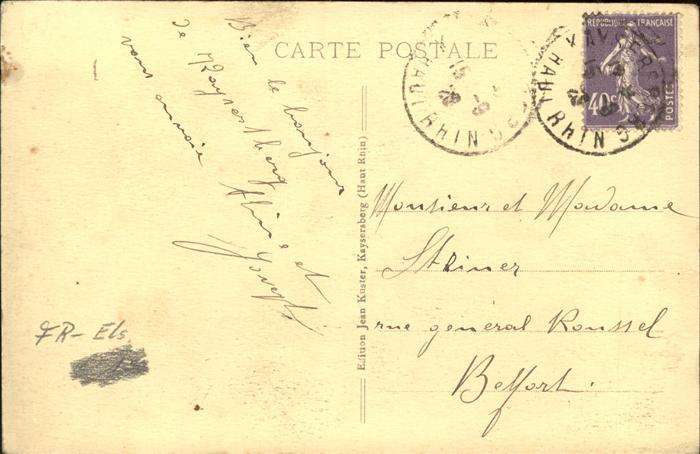 CARTE POSTALE
Bien le bonjour
de Kaysersberg
vous envoie
et
Joseph
FR- Els
Edition Jean Küster, Kaysersberg (Haut Rhin)
RÉPUBLIQUE FRANÇAISE
40c
POSTES
HAUT RHIN
HAUT RHIN
Monsieur et Madame
Steiner
rue général Roussel
Belfort.